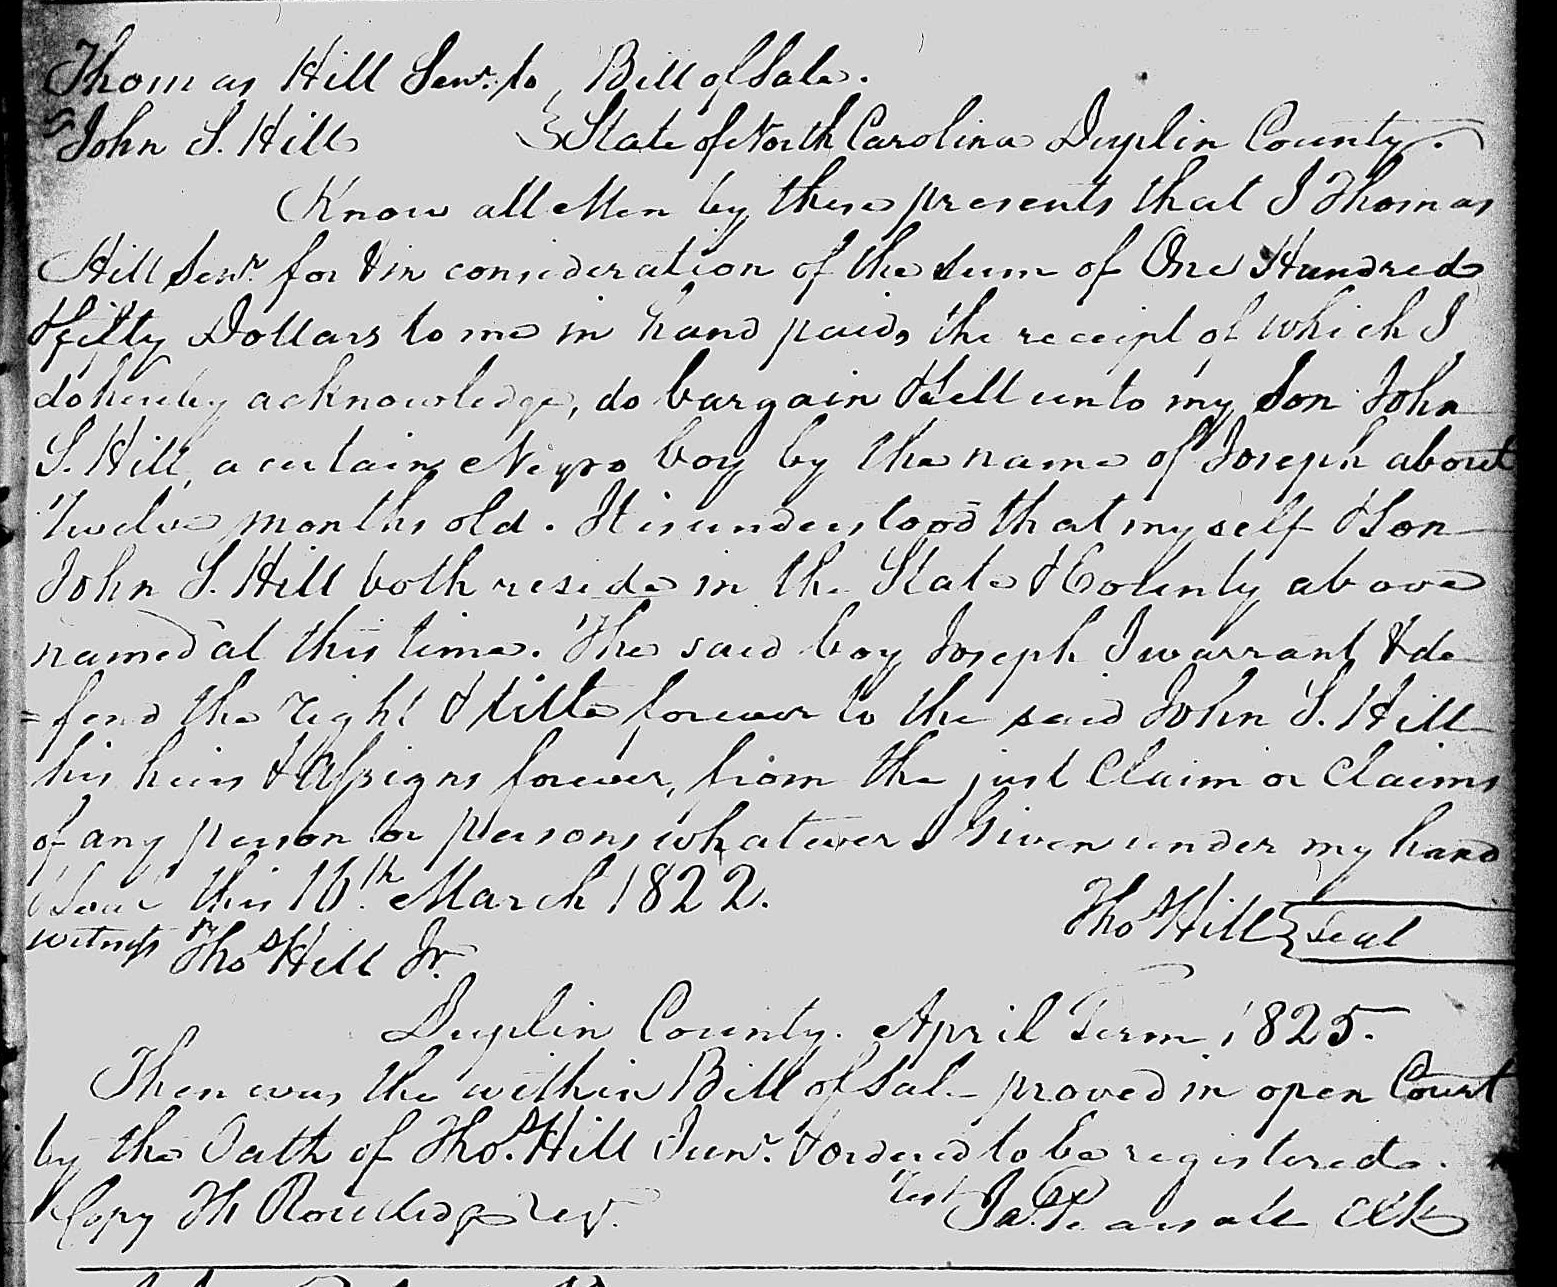 Thomas Hill Senr. to } Bill of Sale.
John S. Hill } State of North Carolina Duplin County.
Know all Men by these presents that I Thomas
Hill Senr. for & in consideration of the sum of One Hundred
& fifty Dollars to me in hand paid, the receipt of which I
do hereby acknowledge, do bargain & Sell unto my Son John
S. Hill, a certain Negro boy by the name of Joseph about
Twelve months old. It is understood that myself & Son
John S. Hill both reside in the State & County above
named at this time. The said boy Joseph I warrant & de
=fend the right & title forever to the said John S. Hill
his heirs & Assigns forever, from the just Claim or Claims
of any person or persons whatever. Given under my hand
& Seal this 16th. March 1822.
Thos Hill {Seal
Witness Thos Hill Jr.
Duplin County. April Term 1825.
Then was the within Bill of Sale proved in open Court
by the Oath of Thos. Hill Junr. & ordered to be registered.
Copy Th Routledge reg.
Test Jas. Pearsall Clk